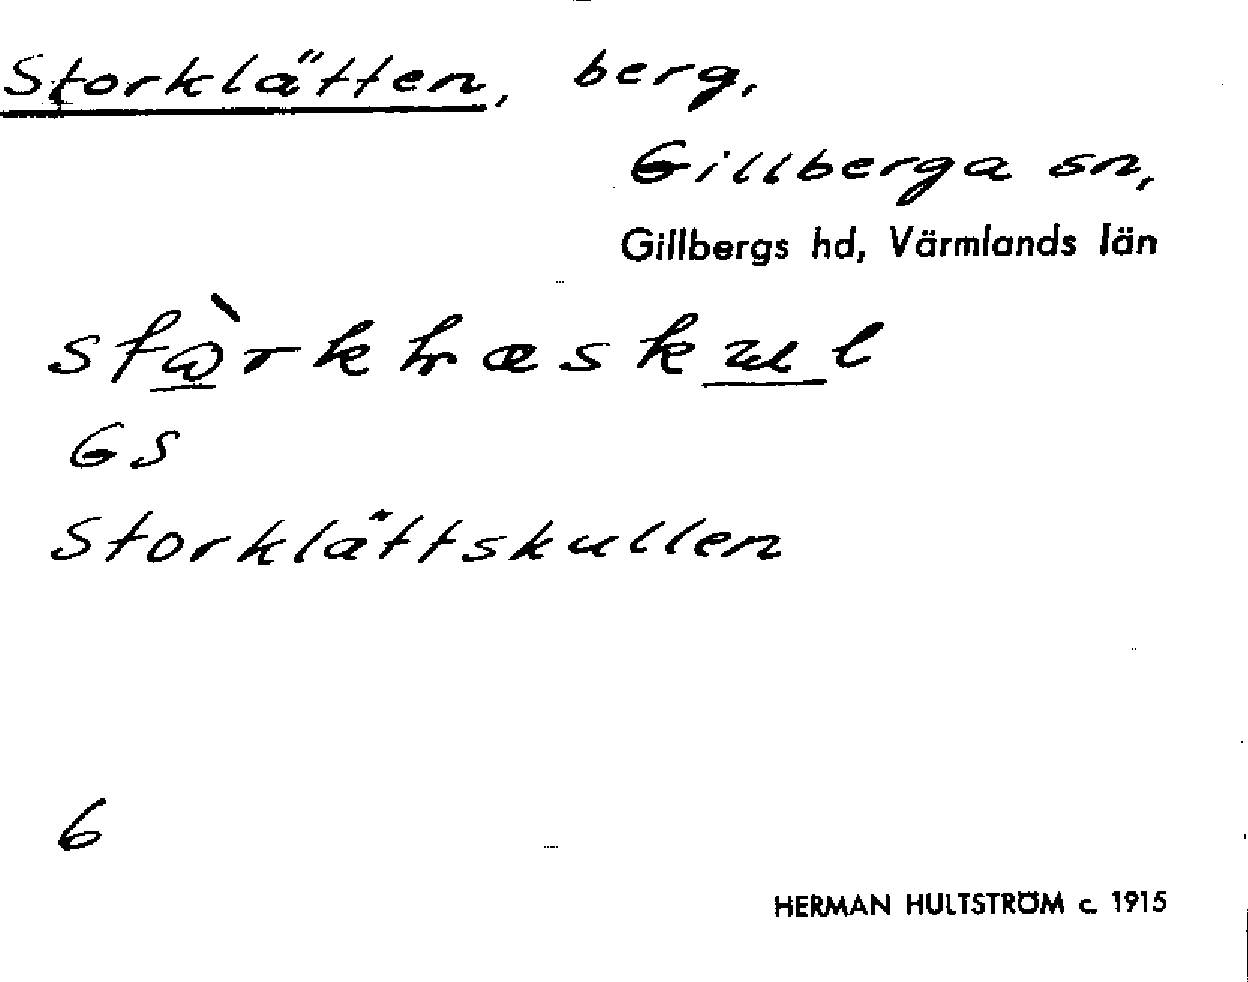 Storklätten, berg,
Gillberga sn,
Gillbergs hd, Värmlands län
GS
Storklättskullen
6
HERMAN HULTSTRÖM c. 1915